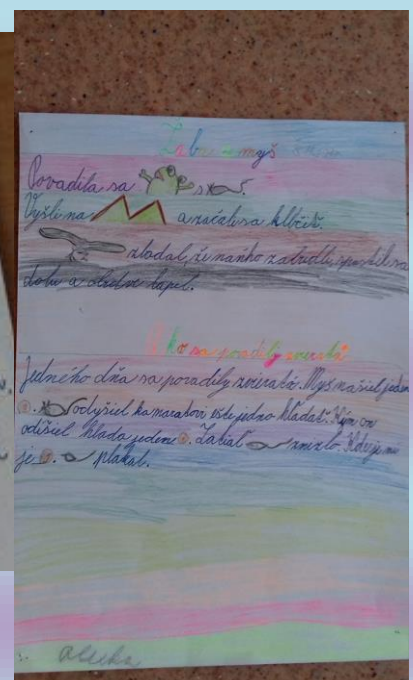 Žaba a myš
Povadila sa s
Vyšli na a začali sa klbčiť.
zbadal, že naňho zabudli, spustil sa
dolu a obidve lapil.
Ako sa povadily zvieratá
Jedného dňa sa povadily zvieratá. Myš našiel jeden
odyšiel kamarátovi ešte jedno hľadať. Kým on
odišiel hľada jeden. Zatiaľ zmizlo. Kde je mu
je plakal.